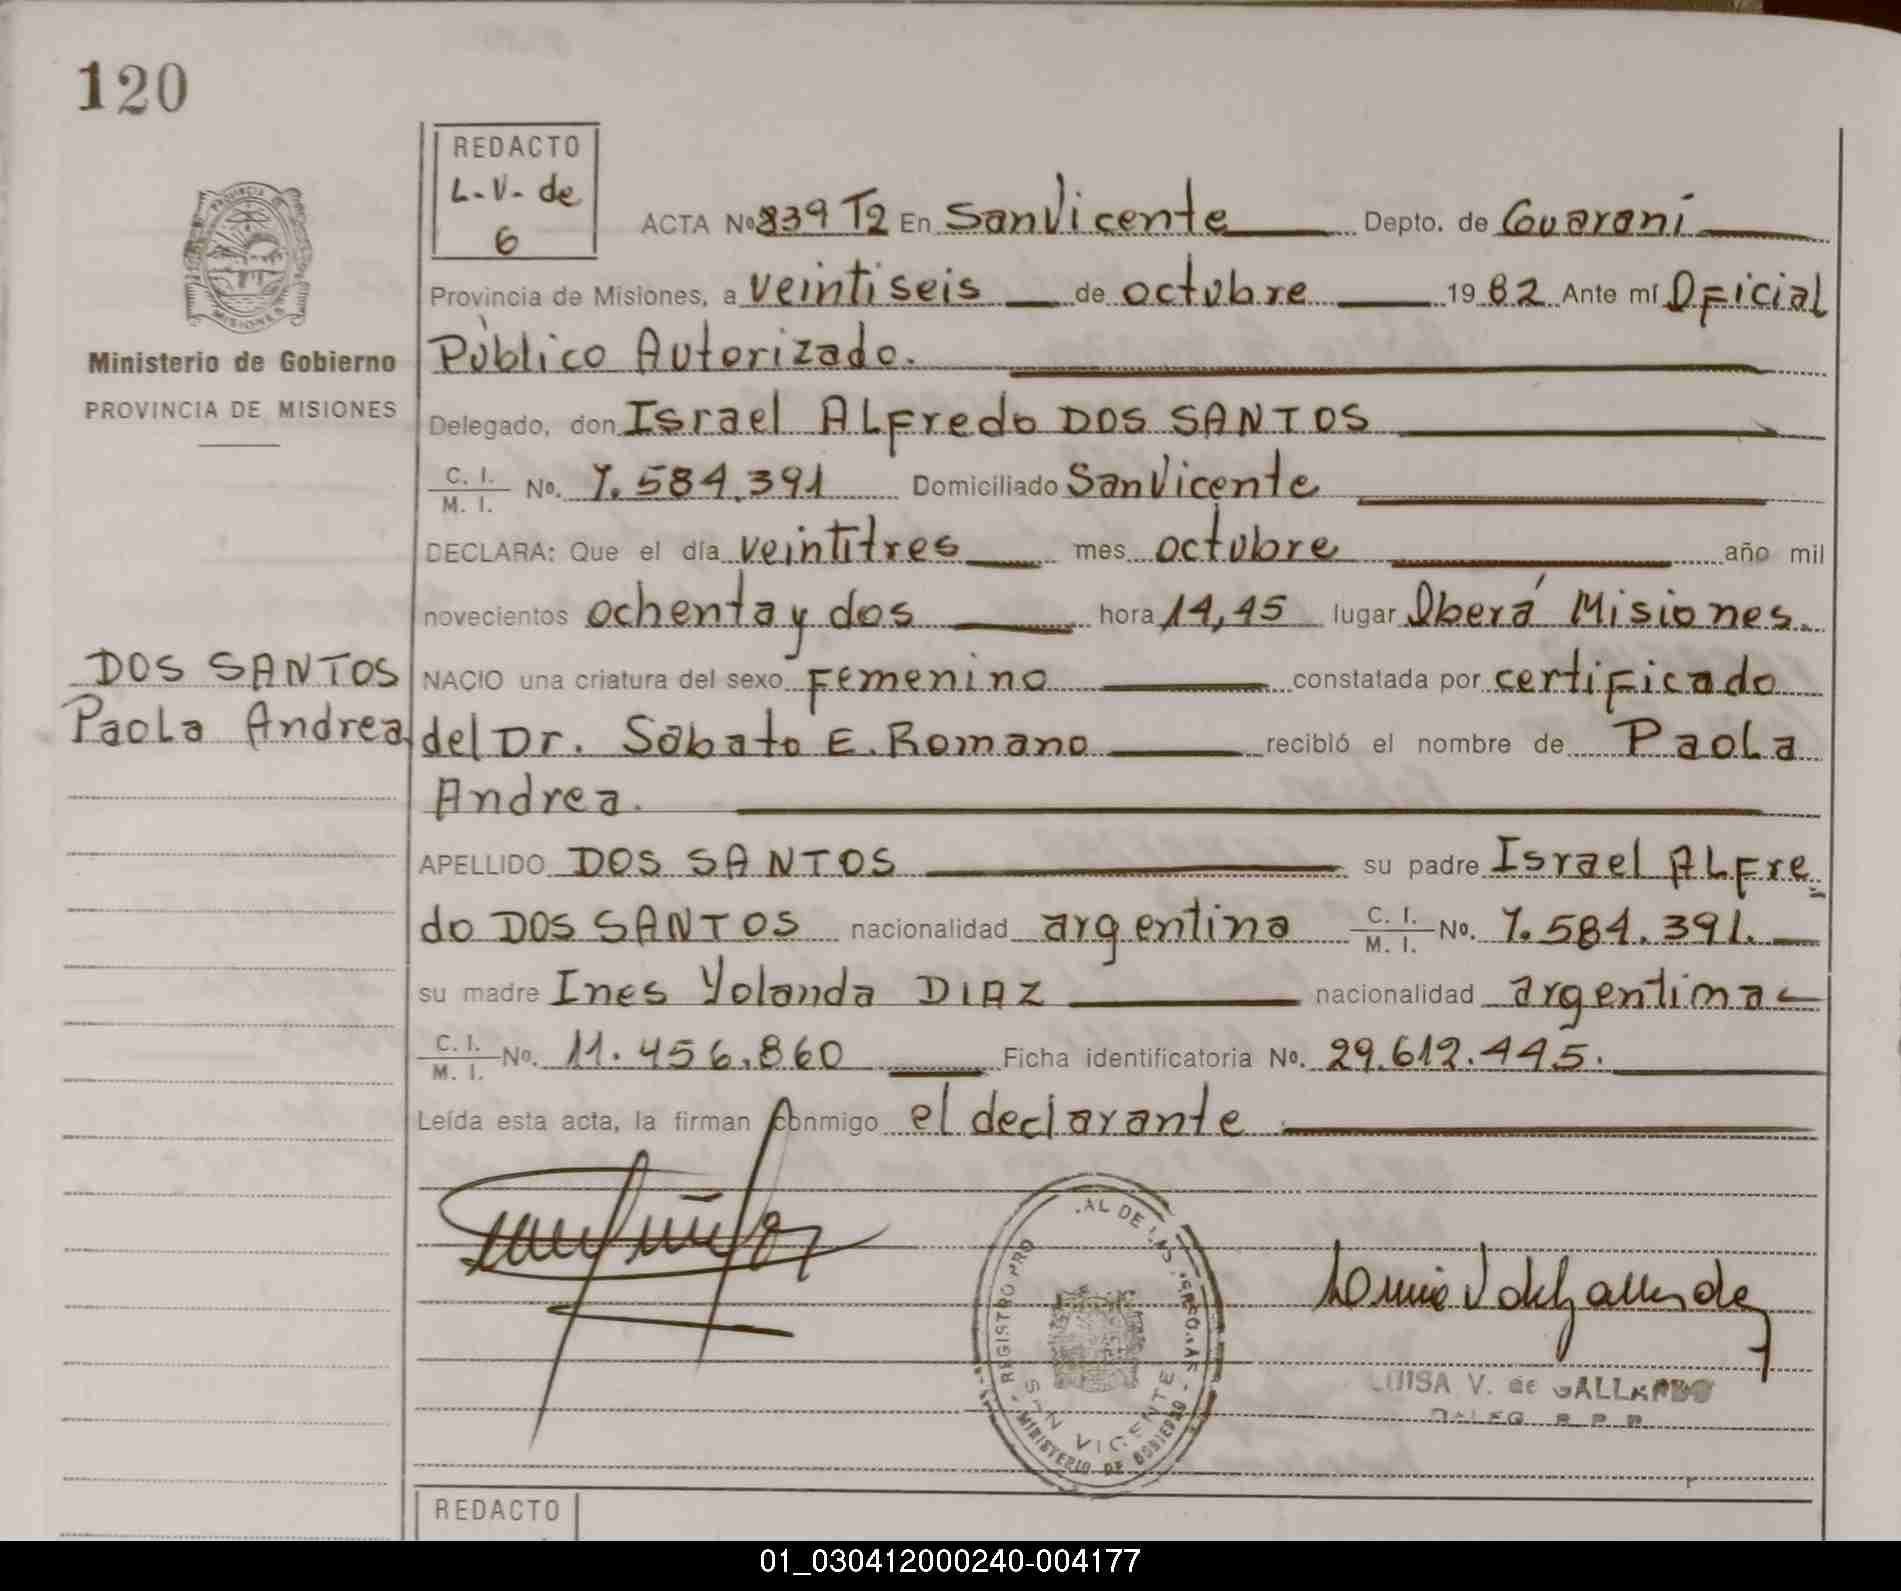 120
REDACTO
L.V. de
6
ACTA Nº 839 T2 En San Vicente Depto. de Guaraní
Provincia de Misiones, a veintiseis de octubre 1982 Ante mí Oficial
Público Autorizado.
Ministerio de Gobierno
PROVINCIA DE MISIONES
Delegado, don Israel ALFredo DOS SANTOS
C. I. / M. I. Nº. 7.584.391 Domiciliado San Vicente
DECLARA: Que el día veintitres mes octubre año mil
novecientos ochenta y dos hora 14,45 lugar Oberá Misiones.
DOS SANTOS
Paola Andrea
NACIO una criatura del sexo Femenino constatada por certificado
del Dr. Sabato E. Romano recibió el nombre de Paola
Andrea.
APELLIDO DOS SANTOS su padre Israel ALFre
do DOS SANTOS nacionalidad argentina C. I. / M. I. Nº. 7.584.391.
su madre Ines Yolanda DIAZ nacionalidad argentina
C. I. / M. I. Nº. 11.456.860 Ficha identificatoria Nº. 29.612.445.
Leída esta acta, la firman conmigo el declarante
SAN VICENTE
MINISTERIO DE GOBIERNO
LUISA V. de GALLARDO
REDACTO
01_030412000240-004177